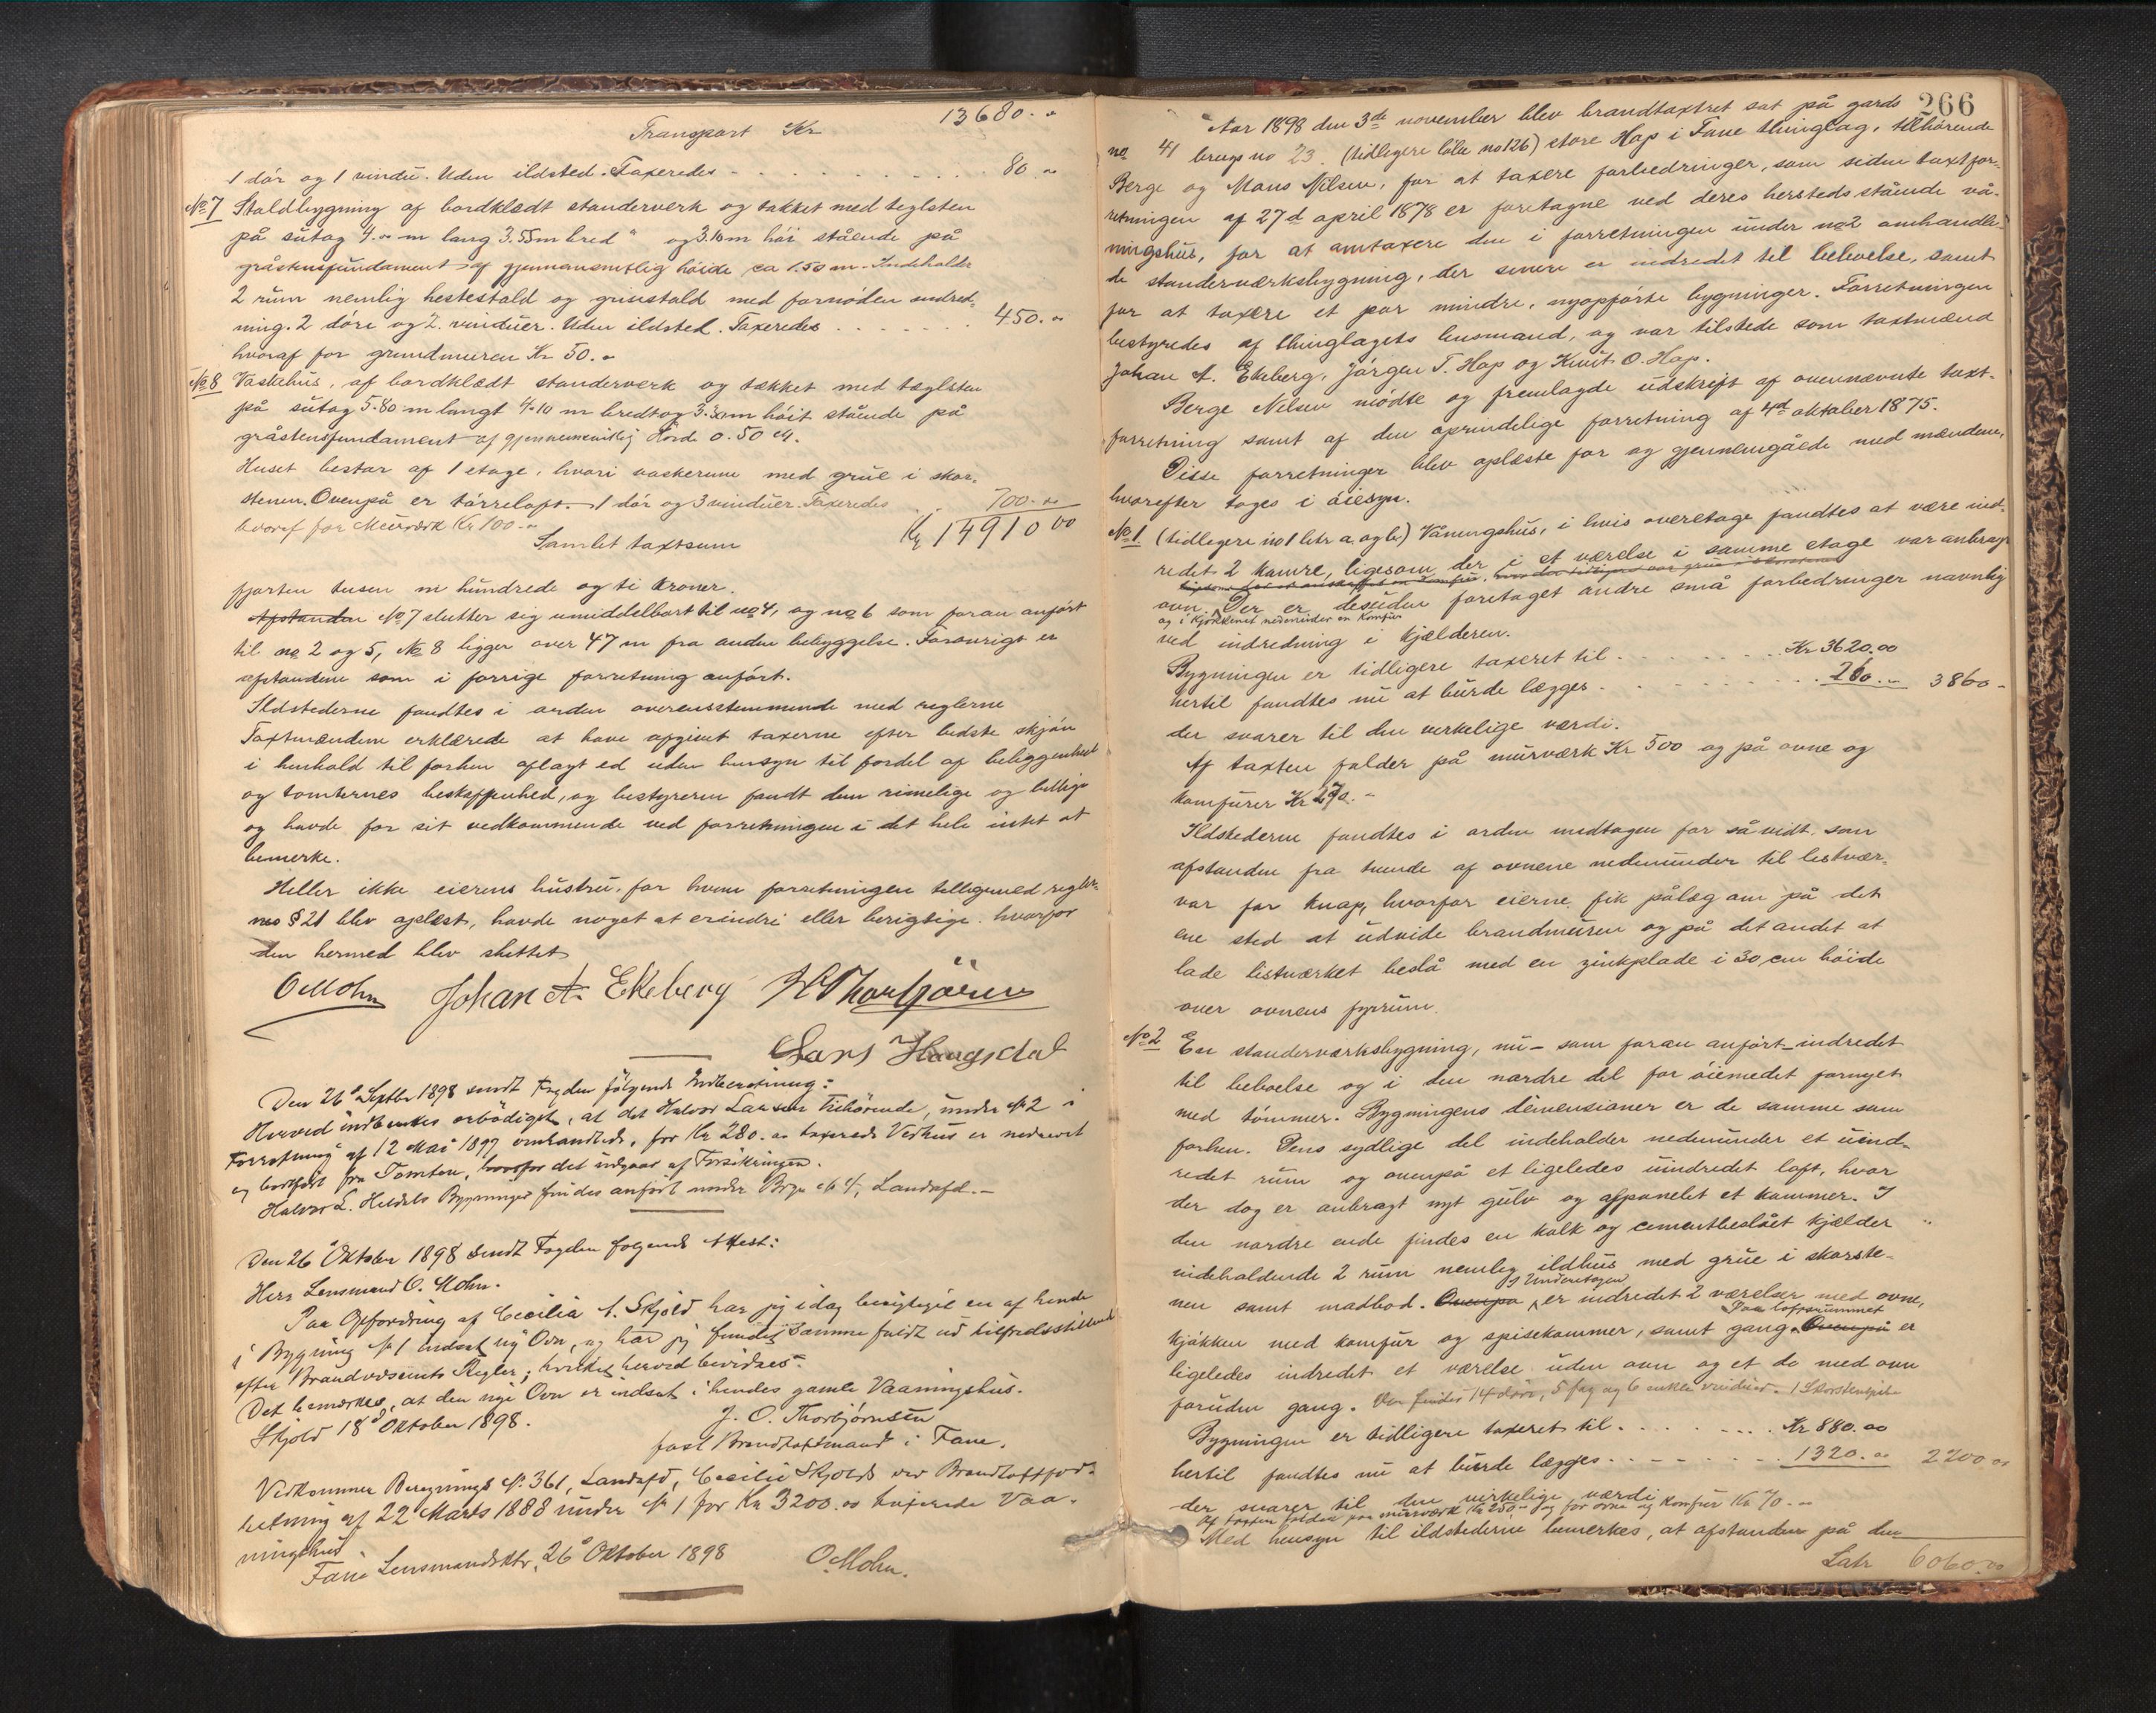 Transport Kr 13680.00
1 dör og 1 vindu. Uden ildsted. Taxeredes 80.00
No 7 Staldbygning af bordklædt standerverk og takket med teglsten
på sutag 4.00 m lang 3.55 m bred og 3.10 m höi stående på
gråstensfundament af gjennemsnitlig höide ca 1.50 m. Indeholder
2 rum nemlig hestestald og grisestald med fornöden indred-
ning. 2 döre og 2 vinduer. Uden ildsted. Taxeredes 450.00
hvoraf for grundmuren Kr 50.00
No 8 Vaskehus, af bordklædt standerverk og tækket med tæglsten
på sutag 5.80 m langt 4.10 m bredt og 3.30 m höit stående på
gråstensfundament af gjennemsnitlig Höide 0.50 M.
Huset bestar af 1 etage, hvori vaskerum med grue i skor-
stenen. Ovenpå er törreloft. 1 dör og 3 vinduer. Taxeredes 700.00
hvoraf for Murværk Kr 100.00
Samlet taxtsum Kr 14910 00
fjorten tusen ni hundrede og ti kroner.
Afstanden No 7 slutter sig umiddelbart til no 4, og no 6 som foran anfört
til no 2 og 5, No 8 ligger over 47 m fra anden bebyggelse. Forövrigt er
afstandene som i forrige forretning anfört.
Ildstederne fandtes i orden overensstemmende med reglerne
Taxtmændene erklærede at have afgivet taxterne efter bedste skjön
i henhold til forhen aflagt ed uden hensyn til fordel af beliggenhed
og tomternes beskaffenhed, og bestyreren fandt dem rimelige og billige
og havde for sit vedkommende ved forretningen i det hele intet at
bemerke.
Heller ikke eierens hustru, for hvem forretningen tilligemed regler-
nes § 21 blev oplæst, havde noget at erindre eller berigtige hvorfor
den hermed blev sluttet
O Mohn Johan A. Ekeberg
Lars Haugsdal
Den 26d Septbr 1898 sendt Fogden fölgende Indberetning:
Herved indberettes ærbödigst, at det Halvor Larsen tilhörende, under No 2 i
Forretning af 12 Mai 1897 omhandlede, for Kr 280.00 taxerede Vedhus er nedrevet
og bortfört fra Tomten, hvorfor det udgaar af Forsikringen.
Halvor L. Heldals Bygninger findes anfört under Brgn No 4, Landsfd.
Den 26d Oktober 1898 sendt Fogden fölgende Attest:
Herr Lensmand O. Mohn.
Paa Opfordring af Cecilia A. Skjold har jeg idag besigtiget en af hende
i Bygning No 1 indsat ny Ovn, og har jeg fundet samme fuldt ud tilfredsstillende
efter Brandvæsenets Regler; hvilket herved bevidnes.
Det bemærkes, at den nye Ovn er indsat i hendes gamle Vaaningshus.
Skjold 18d Oktober 1898.
J. O. Thorbjörnsen
fast Brandtaxtmand i Fane.
Vedkommer Beregnings No 361, Landsfd, Cecilie Skjolds ved Brandtaxtfor-
retning af 22d Marts 1888 under No 1 for Kr 3200.00 taxerede Vaa-
ningshus
Fane Lensmandsktr, 26d Oktober 1898 O Mohn.
266
Aar 1898 den 3de november blev brandtaxtret sat på gards
no 41 brugs no 23. (tidligere löbe no 126) store Hop i Fane thinglag, tilhörende
Berge og Mons Nilsen, for at taxere forbedringer, som siden taxtfor-
retningen af 27d april 1878 er foretagne ved deres hersteds stående vå-
ningshus, for at omtaxere den i forretningen under no 2 omhandle-
de standerværksbygning, der senere er indredet til bebœlse, samt
for at taxere et par mindre, nyopförte bygninger. Forretningen
bestyredes af thinglagets lensmand, og var tilstede som taxtmænd
Johan A. Ekeberg, Jörgen T. Hop og Knut O. Hop.
Berge Nilsen mödte og fremlagde udskrift af ovennævnte taxt-
forretning samt af den oprindelige forretning af 4d oktober 1875.
Disse forretninger blev oplæste for og gjennemgåede med mændene,
hvorefter toges i öiesyn.
No 1 (tidligere no 1 litr a. og b.) Våningshus, i hvis overetage fandtes at være ind-
redet 2 kamre, ligesom der i et værelse i samme etage var anbragt
ovn og i kjökkenet nedenunder en Komfur. Der er desuden foretaget andre små forbedringer navnlig
ved indredning i kjælderen.
Bygningen er tidligere taxeret til Kr 3620.00
hertil fandtes nu at burde lægges 240.00 3860
der svarer til den virkelige værdi.
Af taxten falder på murværk Kr 500 og på ovne og
komfurer Kr 270.
Ildstederne fandtes i orden undtagen for så vidt som
afstanden fra tvende af ovnene nedenunder til listvær-
var for knap, hvorfor eierne fik pålæg om på det
ene sted at udvide brandmuren og på det andet at
lade listværket beslå med en zinkplade i 30 cm höide
over ovnens fyrrum.
No 2 En standerværksbygning, nu - som foran anfört - indredet
til beboelse og i den nordre del for öiemedet fornyet
med tömmer. Bygningens dimensioner er de samme som
forhen. Dens sydlige del indeholder nedenunder et uind-
redet rum og ovenpå et ligeledes uindredet loft, hvor
der dog er anbragt nyt gulv og afpanelet et kammer. I
den nordre ende findes en kalk og cementbeslået kjælder
indeholdende 2 rum nemlig ildhus med grue i skorste-
nen samt madbod. I Underetagen er indredet 2 værelser med ovne,
kjökken med komfur og spisekammer, samt gang. Paa loftsrummet er
ligeledes indredet et værelse uden ovn og et do med ovn
foruden gang. Der findes 14 döre, 5 fag og 6 enkle vinduer. 1 Skorstenspibe
Bygningen er tidligere taxeret til Kr 880.00
hertil fandtes nu at burde lægges 1320.00 2200 00
der svarer til den virkelige værdi
Af taxten falder paa murværk Kr 250 og for ovne og komfur Kr 70.00
Med hensyn til ildstederne bemerkes, at afstanden på den
Latr 6060.00